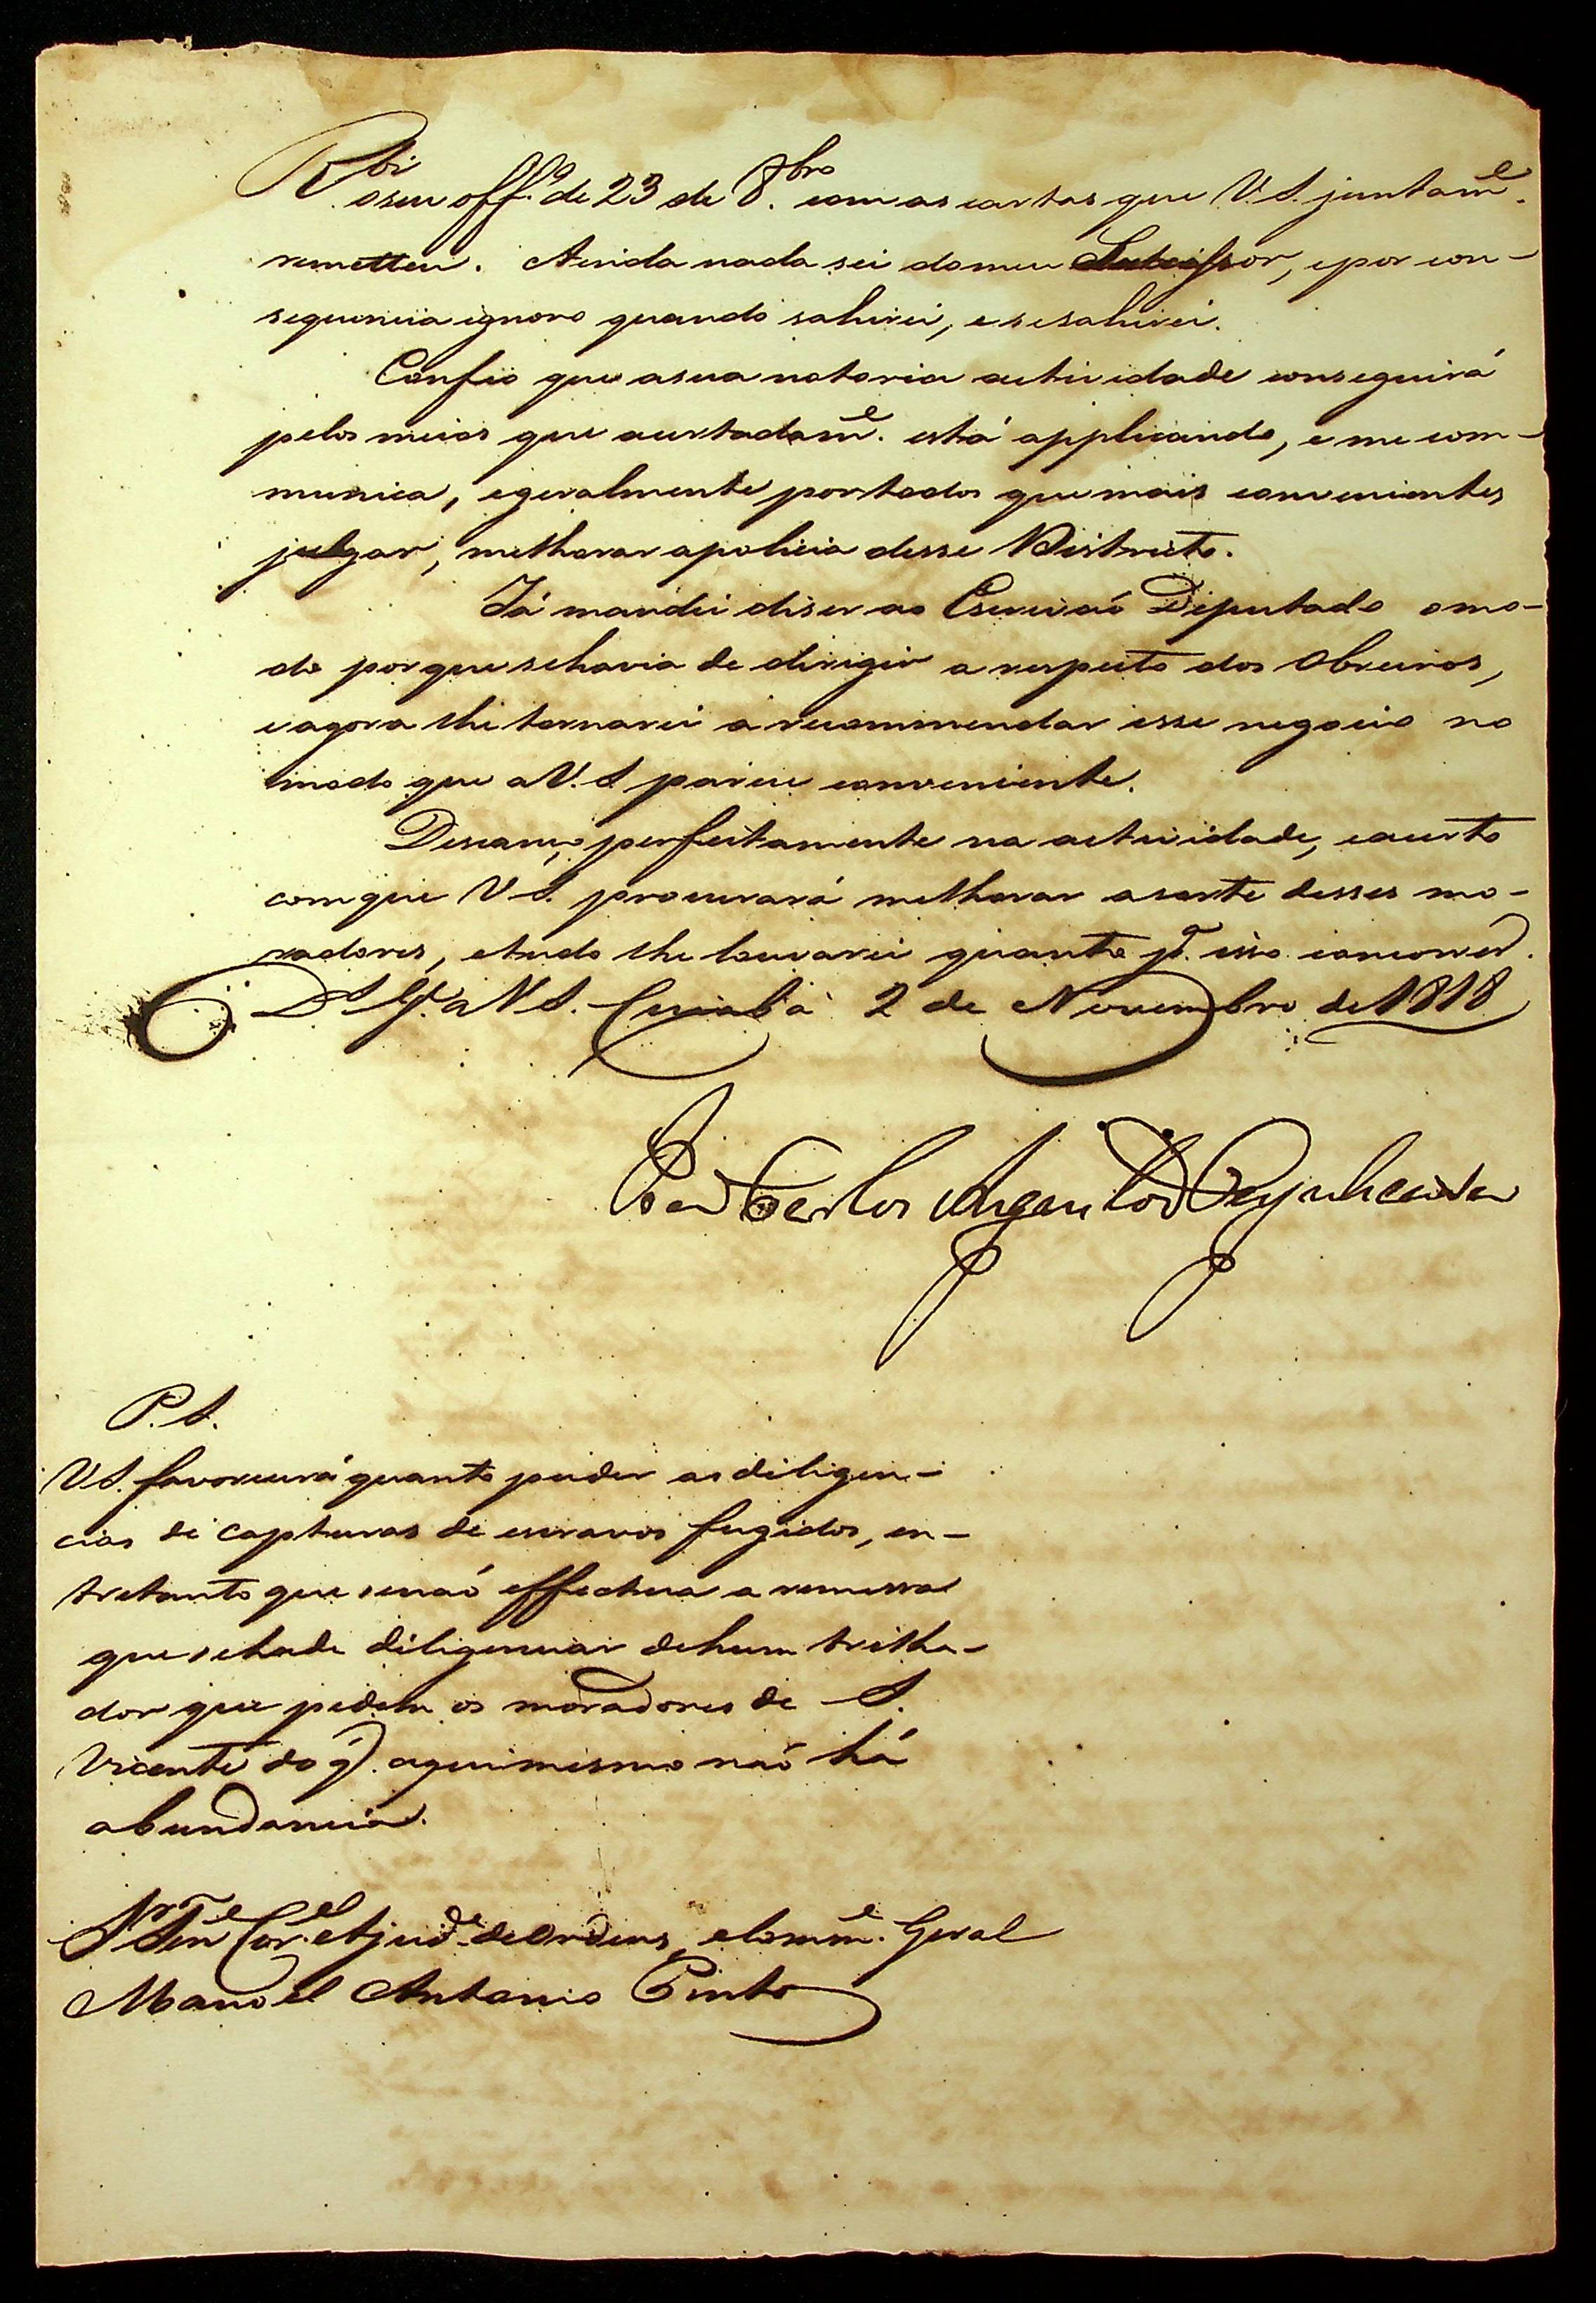 R.bi o seu off.o de 23 de 8.bro com as cartas que V.S. juntam.e
remetteu. Ainda nada sei do meu Sucessor, e por con-
sequencia ignoro quando sahirei, e se sahirei.
Confio que a sua notoria actividade conseguirá
pelos meios que acertadam.e está applicando, e me com-
munica, e geralmente por todos que mais convenientes
julgar, melhorar a policia desse Districto.
Já mandei diser ao Escrivaõ Deputado o mo-
do por que se havia de dirigir a respeito dos Obreiros,
e agora lhe tornarei a recommendar esse negocio no
modo que a V.S. parece conveniente.
Descanço perfeitamente na actividade, e acerto
com que V.S. procurará melhorar a sorte desses mo-
radores, e tudo lhe louvarei quanto p.a isso concorrer.
D.s G.e a V.S. Cuiabá 2 de Novembro de 1818
João Carlos Augusto d'Oeynhausen
P.S.
V.S. favorecerá quanto puder as diligen-
cias de capturas de escravos fugidos, en-
tretanto que senaõ effectua a remessa
que se ha de diligenciar de hum trilha-
dor que pedem os moradores de S.
Vicente do q.l aqui mesmo naõ há
abundancia.
S.r Ten.e Cor.el Ajud.e de Ordens, e Comm.e Geral
Manoel Antonio Pinto